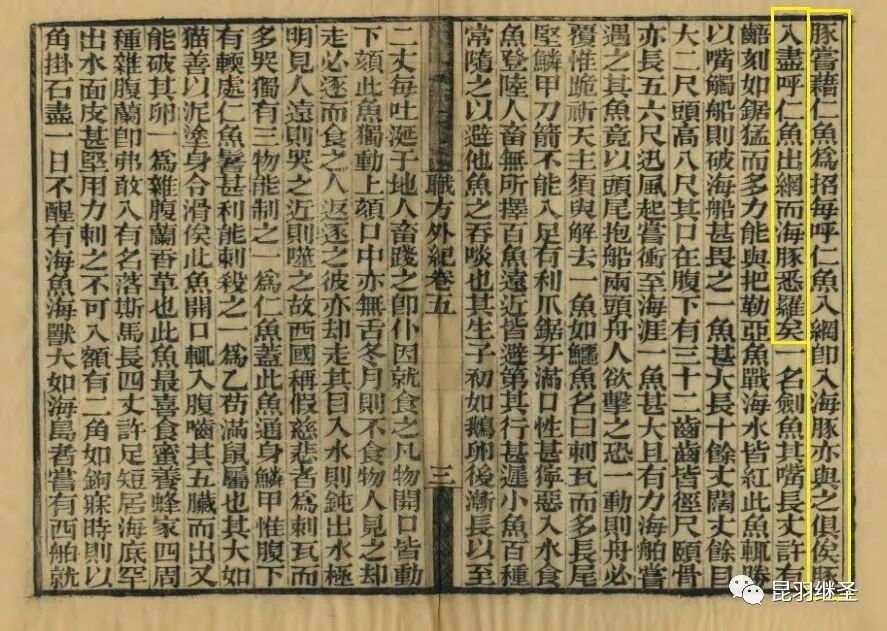 豚嘗藉仁魚爲招每呼仁魚入網即入海豚亦與之俱俟豚
入盡呼仁魚出網而海豚悉羅矣一名劍魚其嘴長丈許有
齬刻如鋸猛而多力能與把勒亞魚戰海水皆紅此魚輒勝
以嘴觸船則破海船甚畏之一魚甚大長十餘丈闊丈餘目
大二尺頭高八尺其口在腹下有三十二齒齒皆徑尺頤骨
亦長五六尺迅風起嘗衝至海涯一魚甚大且有力海舶嘗
遇之其魚竟以頭尾抱船兩頭舟人欲擊之恐一動則舟必
覆惟跪祈天主須臾解去一魚如鱷魚名曰剌瓦而多長尾
堅鱗甲刀箭不能入足有利爪鋸牙滿口性甚獰惡入水食
魚登陸人畜無所擇百魚遠近皆避第其行甚遲小魚百種
常隨之以避他魚之吞啖也其生子初如鵝卵後漸長以至
職方外紀卷五
三
二丈每吐涎于地人畜踐之即仆因就食之凡物開口皆動
下頦此魚獨動上頦口中亦無舌冬月則不食物人見之却
走必逐而食之人返逐之彼亦却走其目入水則鈍出水極
明見人遠則哭之近則噬之故西國稱假慈悲者爲剌瓦而
多哭獨有三物能制之一爲仁魚蓋此魚通身鱗甲惟腹下
有輭處仁魚鬐甚利能刺殺之一爲乙苟滿鼠屬也其大如
猫善以泥塗身令滑俟此魚開口輒入腹嚙其五臟而出又
能破其卵一爲雜腹蘭香草也此魚最喜食蜜養蜂家四周
種雜腹蘭即弗敢入有名落斯馬長四丈許足短居海底罕
出水面皮甚堅用力刺之不可入額有二角如鉤寐時則以
角掛石盡一日不醒有海魚海獸大如海島者嘗有西舶就
昆羽继圣